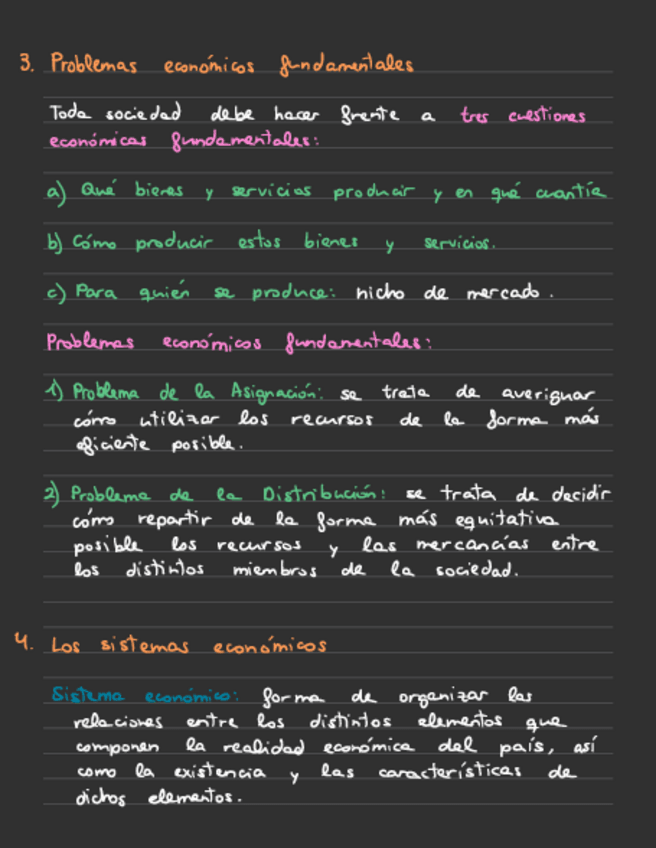 3. Problemas económicos fundamentales
Toda sociedad debe hacer frente a tres cuestiones
económicas fundamentales:
a) Qué bienes y servicios producir y en qué cuantía
b) Cómo producir estos bienes y servicios.
c) Para quién se produce: nicho de mercado.
Problemas económicos fundamentales:
1) Problema de la Asignación: se trata de averiguar
cómo utilizar los recursos de la forma más
eficiente posible.
2) Problema de la Distribución: se trata de decidir
cómo repartir de la forma más equitativa
posible los recursos y las mercancías entre
los distintos miembros de la sociedad.
4. Los sistemas económicos
Sistema económico: forma de organizar las
relaciones entre los distintos elementos que
componen la realidad económica del país, así
como la existencia y las características de
dichos elementos.